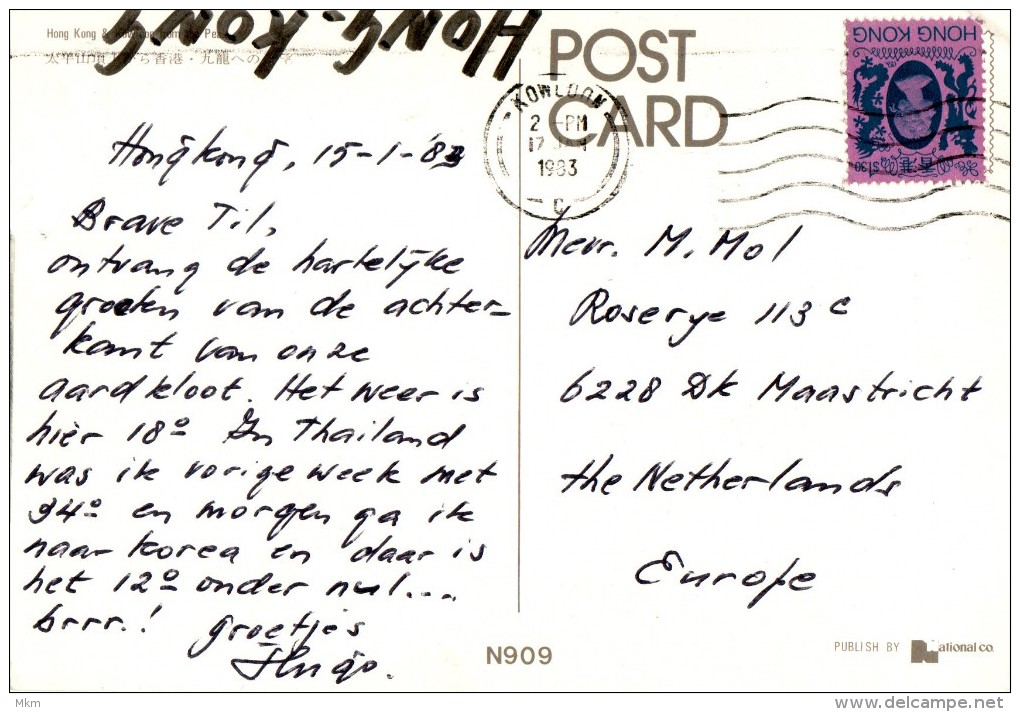 Hong Kong & Kowloon from the Peak
HONG-KONG
POST
CARD
KOWLOON
2 -PM
1983
C
HONG KONG
香港
$1.30
Hongkong, 15-1-'83
Brave Til,
ontvang de hartelijke
groeten van de achter-
kant van onze
aardkloot. Het weer is
hier 18° In Thailand
was ik vorige week met
34° en morgen ga ik
naar Korea en daar is
het 12° onder nul...
brrr.! groetjes
Hugo.
Mevr. M. Mol
Roserye 113 c
6228 DK Maastricht
the Netherlands
Europe
N909
PUBLISH BY National co.
Mkm
www.delcampe.net